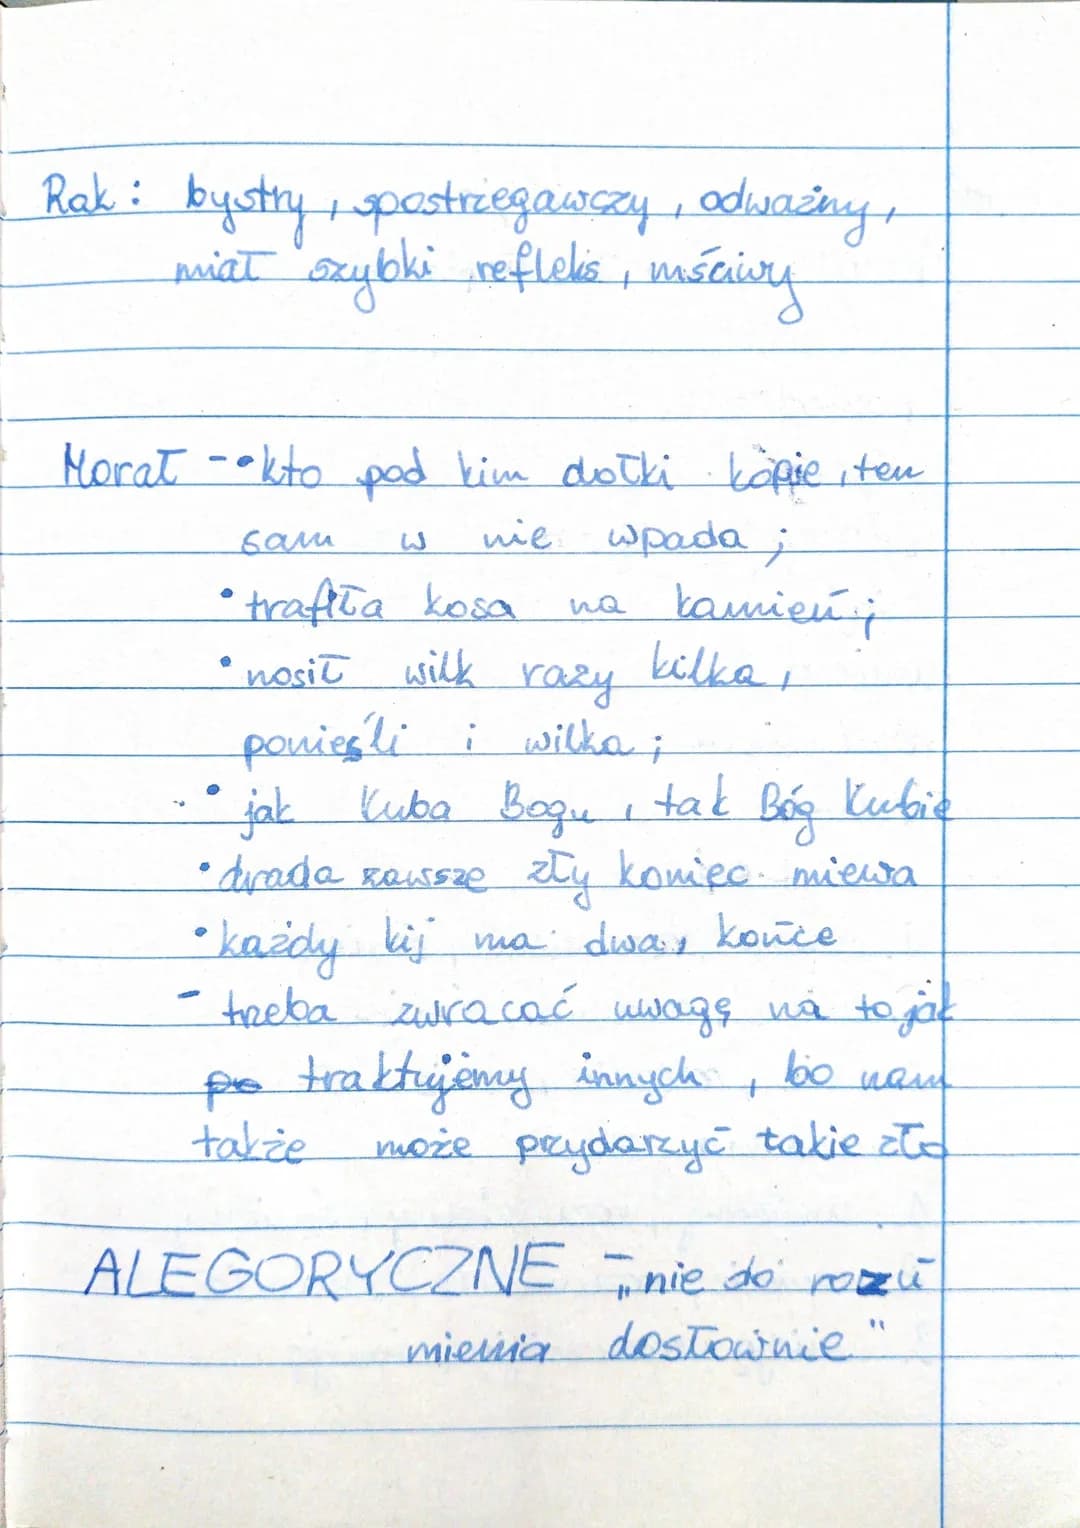 Rak: bystry, spostrzegawczy, odważny,
miał szybki refleks, mściwy
Morał - • kto pod kim dołki kopie, ten
sam w nie wpada;
• trafiła kosa na kamień;
• nosił wilk razy kilka,
ponieśli i wilka;
• jak Kuba Bogu, tak Bóg Kubie
• zdrada zawsze zły koniec miewa
• każdy kij ma dwa końce
- trzeba zwracać uwagę na to jak
traktujemy innych, bo nam
także może przydarzyć takie zło
ALEGORYCZNE - „nie do rozu
mienia dosłownie"